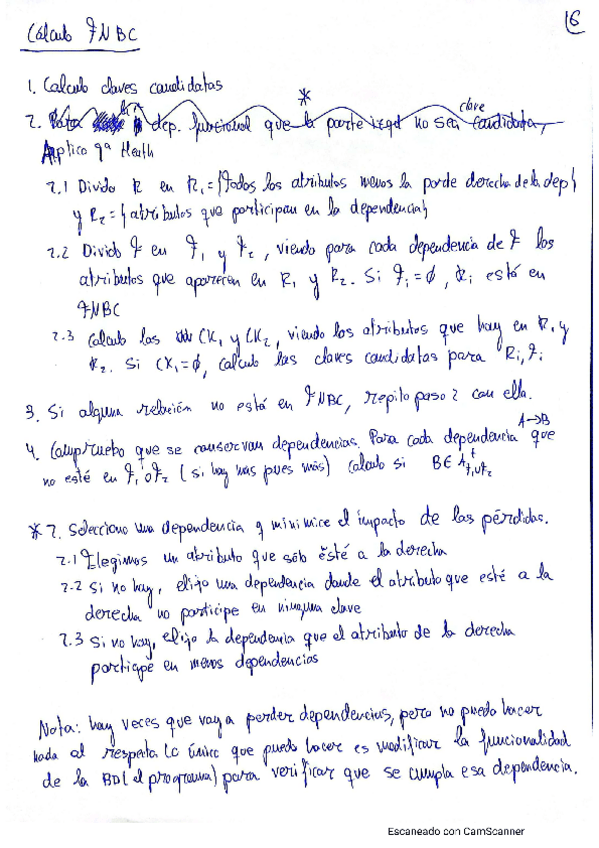 6
Cálculo FNBC
1. Calculo claves candidatas
*
clave
2. Para la dep. funcional que la parte izqd no sea candidata,
Applico Tª Heath
2.1 Divido R en R₁={Todos los atributos menos la parte derecha de la dep}
y R₂={atributos que participan en la dependencia}
2.2 Divido F en F₁ y F₂, viendo para cada dependencia de F los
atributos que aparecen en R₁ y R₂. Si Fᵢ=∅, Rᵢ está en
FNBC
2.3 Calculo las CK₁ y CK₂, viendo los atributos que hay en R₁ y
R₂. Si CKᵢ=∅, calculo las claves candidatas para Rᵢ, Fᵢ
3. Si alguna relación no está en FNBC, repito paso 2 con ella.
A→B
4. Compruebo que se conservan dependencias. Para cada dependencia que
no esté en F₁ o F₂ (si hay mas pues más) calculo si B∈A⁺F₁∪F₂
* 2. Selecciono una dependencia q minimice el impacto de las pérdidas.
2.1 Elegimos un atributo que sólo esté a la derecha
2.2 Si no hay, elijo una dependencia donde el atributo que esté a la
derecha no participe en ninguna clave
2.3 Si no hay, elijo la dependencia que el atributo de la derecha
participe en menos dependencias
Nota: hay veces que voy a perder dependencias, pero no puedo hacer
nada al respecto. Lo único que puedo hacer es modificar la funcionalidad
de la BD (el programa) para verificar que se cumpla esa dependencia.
Escaneado con CamScanner